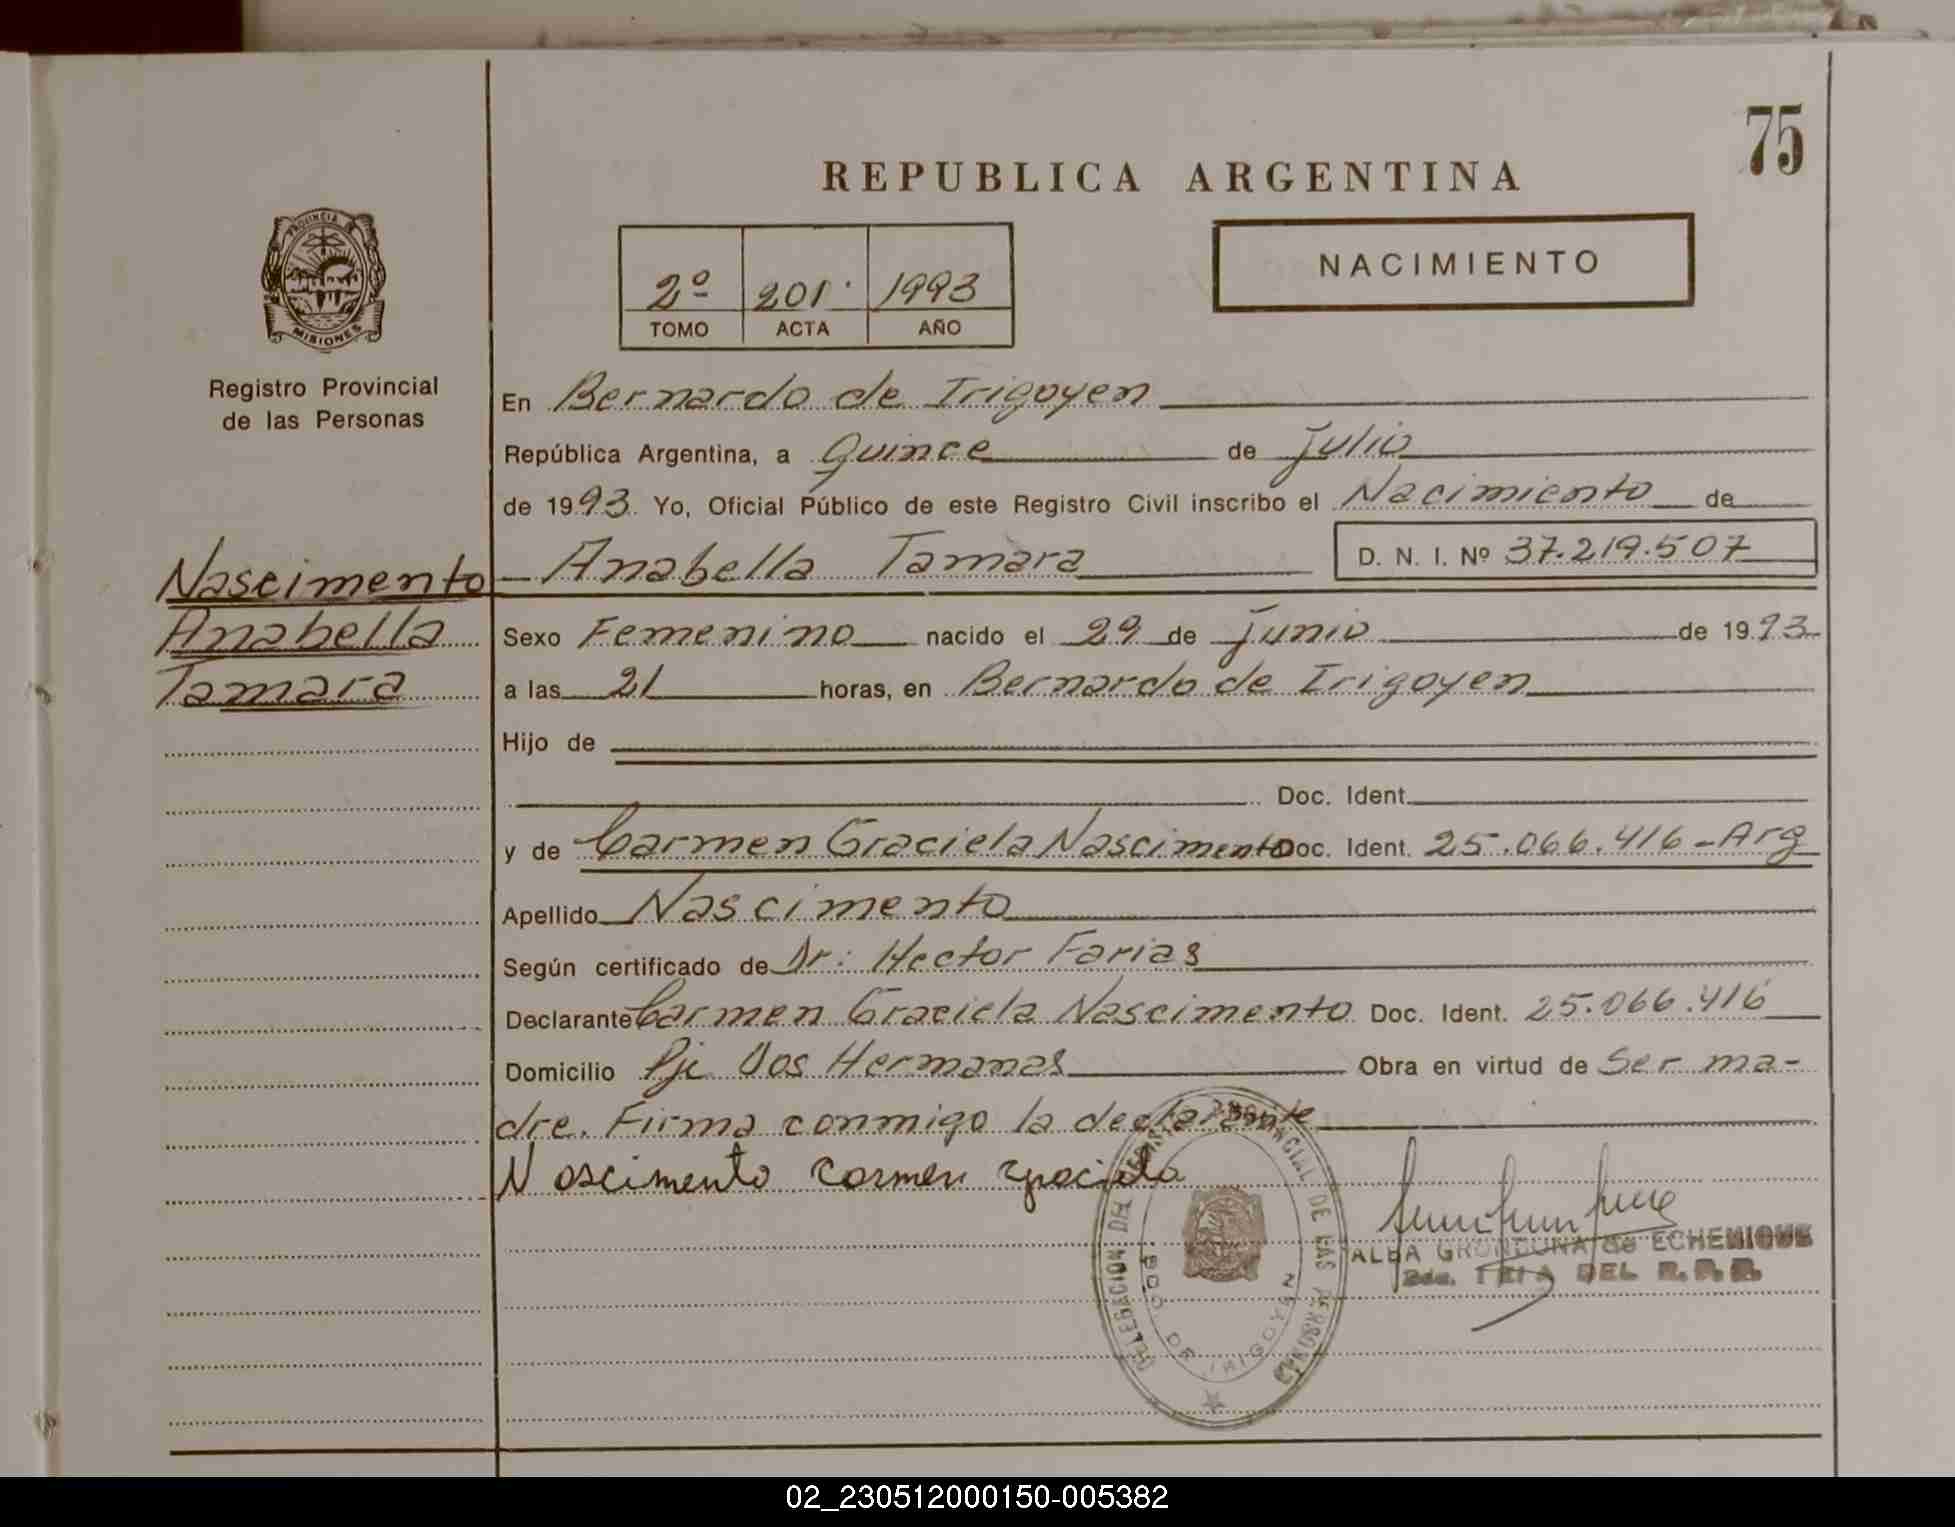 75
REPUBLICA ARGENTINA
PROVINCIA DE
MISIONES
2º 201 1993
TOMO ACTA AÑO
NACIMIENTO
Registro Provincial
de las Personas
En Bernardo de Irigoyen
República Argentina, a Quince de Julio
de 1993. Yo, Oficial Público de este Registro Civil inscribo el Nacimiento de
Anabella Tamara D. N. I. Nº 37.219.507
Nascimento
Anabella
Tamara
Sexo Femenino nacido el 29 de Junio de 1993
a las 21 horas, en Bernardo de Irigoyen
Hijo de
Doc. Ident.
y de Carmen Graciela Nascimento Doc. Ident. 25.066.416-Arg
Apellido Nascimento
Según certificado de Dr: Hector Farias
Declarante Carmen Graciela Nascimento Doc. Ident. 25.066.416
Domicilio Pje Dos Hermanas Obra en virtud de Ser ma-
dre. Firma conmigo la declarante
Nascimento Carmen Graciela
DELEGACION DEL REGISTRO PROVINCIAL DE LAS PERSONAS
BDO. DE IRIGOYEN
ALBA GRONDONA de ECHENIQUE
DEL R. P. P.
02_230512000150-005382